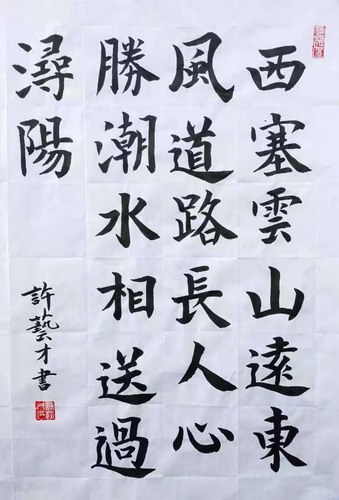 西塞雲山遠東
風道路長人心
勝潮水相送過
潯陽
許藝才書